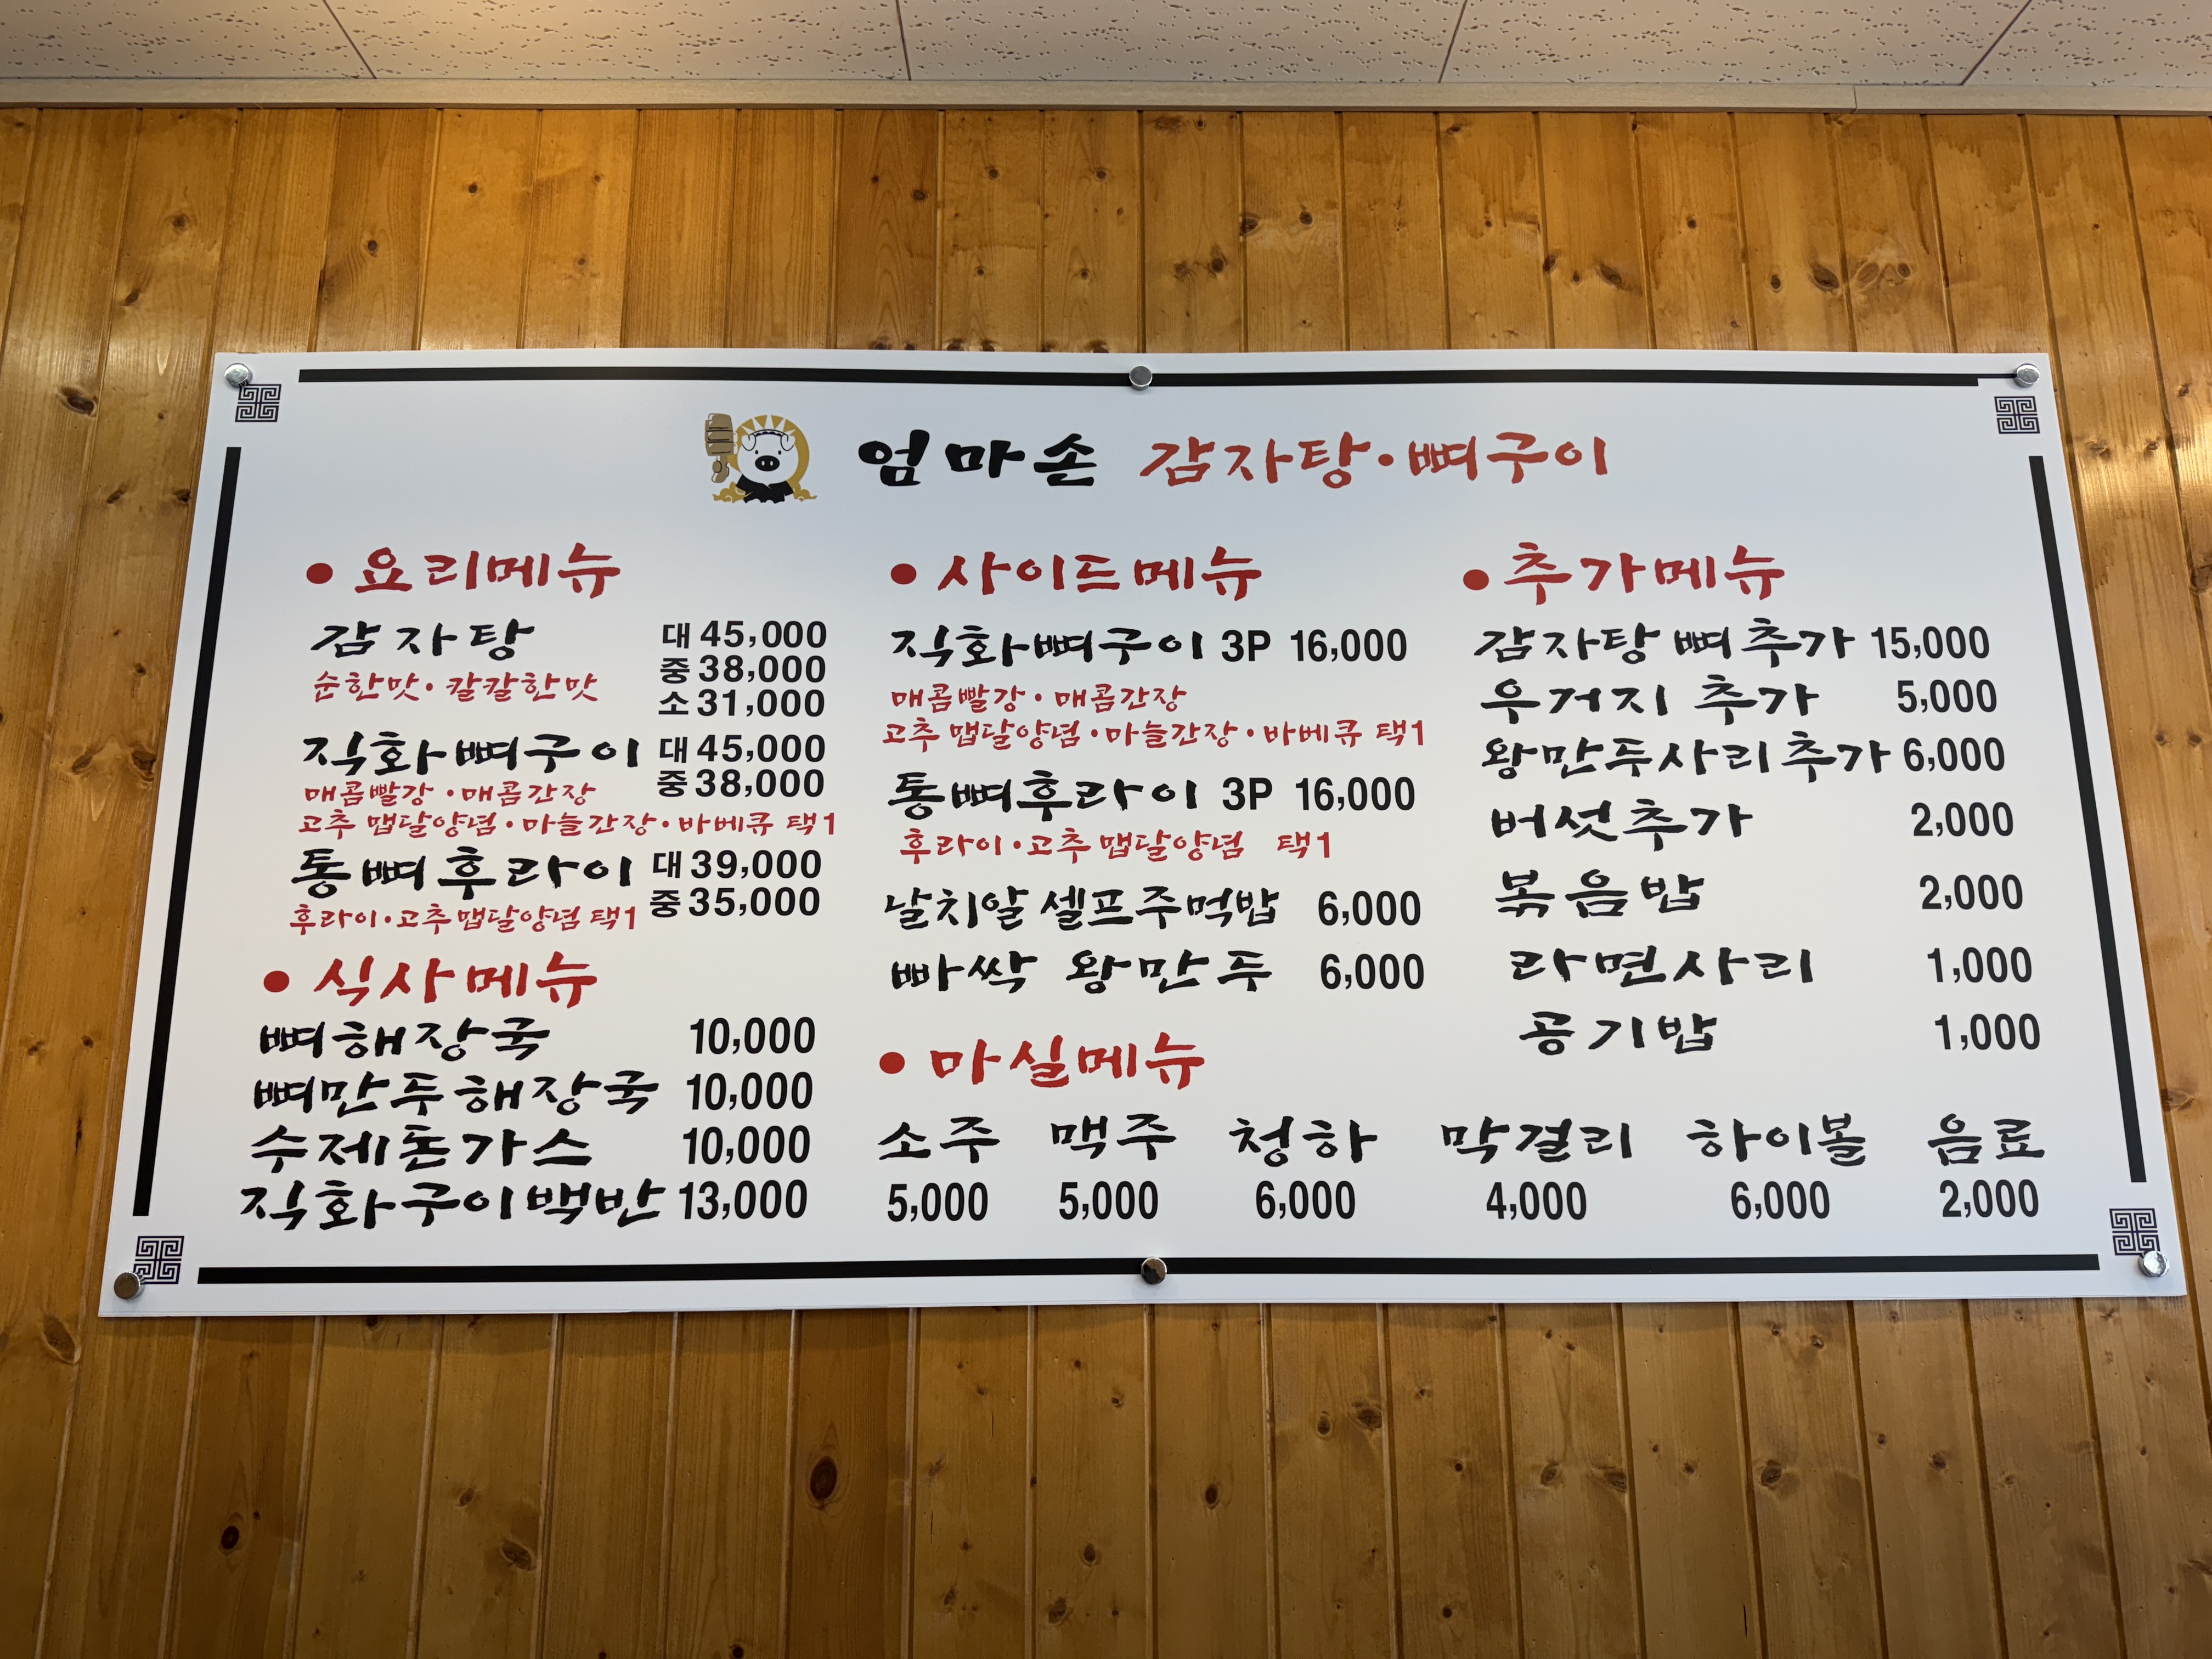 엄마손 감자탕·뼈구이
• 요리메뉴
감자탕 대 45,000
중 38,000
순한맛·칼칼한맛
소 31,000
직화뼈구이 대 45,000
중 38,000
매콤빨강·매콤간장
고추 맵달양념·마늘간장·바베큐 택1
통뼈후라이 대 39,000
중 35,000
후라이·고추맵달양념 택1
• 식사메뉴
뼈해장국 10,000
뼈만두해장국 10,000
수제돈가스 10,000
직화구이백반 13,000
• 사이드메뉴
직화뼈구이 3P 16,000
매콤빨강·매콤간장
고추 맵달양념·마늘간장·바베큐 택1
통뼈후라이 3P 16,000
후라이·고추 맵달양념 택1
날치알 셀프주먹밥 6,000
빠싹 왕만두 6,000
• 추가메뉴
감자탕 뼈추가 15,000
우거지 추가 5,000
왕만두사리추가 6,000
버섯추가 2,000
볶음밥 2,000
라면사리 1,000
공기밥 1,000
• 마실메뉴
소주 맥주 청하 막걸리 하이볼 음료
5,000 5,000 6,000 4,000 6,000 2,000